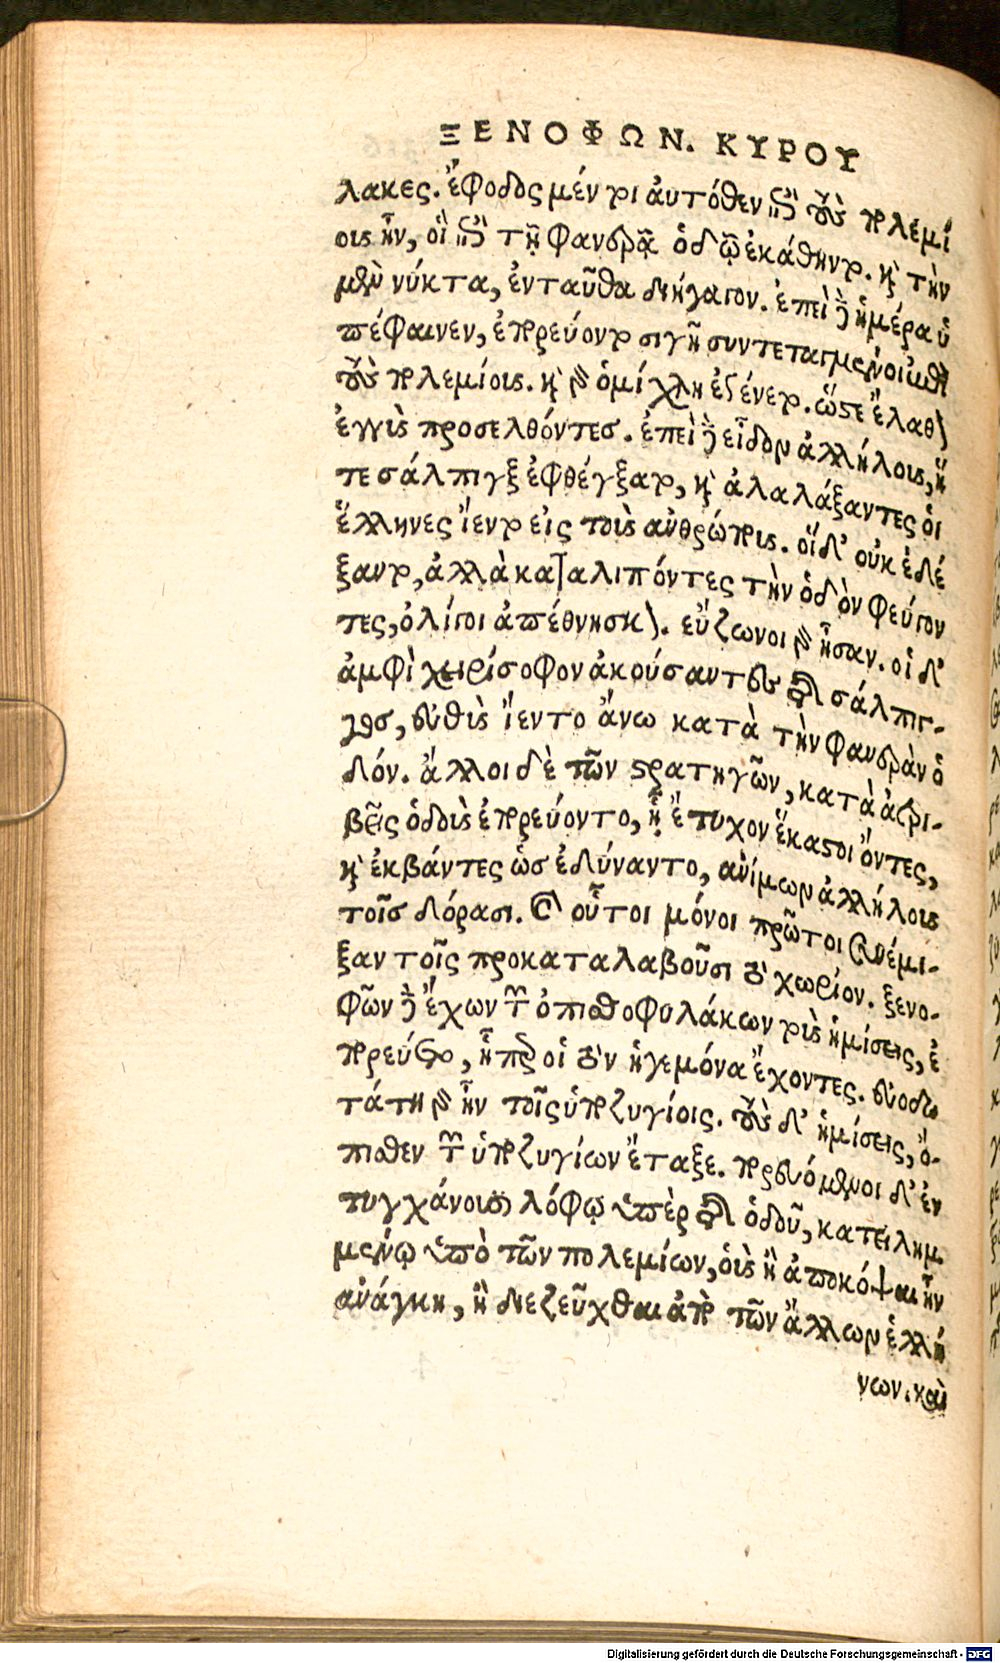 ΞΕΝΟΦΩΝ. ΚΥΡΟΥ
λακες. ἔφοδος μέν τοι ἀυτόθεν ἐπὶ τοὺς πολεμί
οις ἦν, οἳ ἐπὶ τῇ φανερᾷ ὁδῷ ἐκάθηντο. καὶ τὴν
μὲν νύκτα, ἐνταῦθα διήγαγον. ἐπεὶ δ' ἡμέρα ὑ
πέφαινεν, ἐπορεύοντο σιγῇ συντεταγμένοι ἐπὶ
τοὺς πολεμίοις. καὶ γὰρ ὁμίχλη ἐγένετο. ὥστε ἔλαθον
ἐγγὺς προσελθόντεσ. ἐπεὶ δὲ εἶδον ἀλλήλοις, ἥ
τε σάλπιγξ ἐφθέγξατο, καὶ ἀλαλάξαντες ὁι
ἕλληνες ἵεντο εἰς τοὺς ἀνθρώπους. οἵ δ' οὐκ ἐδέ
ξαντο, ἀλλὰ καταλιπόντες τὴν ὁδὸν φεύγον
τες, ὀλίγοι ἀπέθνησκον. εὔζωνοι γὰρ ἦσαν. οἱ δ'
ἀμφὶ χειρίσοφον ἀκούσαντες τῆς σάλπιγ-
γοσ, εὐθὺς ἵεντο ἄνω κατὰ τὴν φανερὰν ὁ
δόν. ἄλλοι δὲ τῶν στρατηγῶν, κατὰ ἀτρι-
βεῖς ὁδοὺς ἐπορεύοντο, ᾗ ἔτυχον ἕκαστοι ὄντες,
καὶ ἐκβάντες ὡσ ἐδύναντο, ἀνίμων ἀλλήλοις
τοῖσ δόρασι. καὶ οὗτοι μόνοι πρῶτοι συνέμι-
ξαν τοῖς προκαταλαβοῦσι τὸ χωρίον. ξενο-
φῶν δὲ ἔχων τῶν ὀπισθοφυλάκων τοὺς ἡμίσεις, ἐ
πορεύετο, ᾗπερ οἱ τὸν ἡγεμόνα ἔχοντες. εὐοδω
τάτη γὰρ ἦν τοῖς ὑποζυγίοις. τοὺς δ' ἡμίσεις, ὄ-
πισθεν τῶν ὑποζυγίων ἔταξε. πορευόμενοι δ' ἐν
τυγχάνουσι λόφῳ ὑπὲρ τῆς ὁδοῦ, κατειλημ
μένῳ ὑπὸ τῶν πολεμίων, ὁὺς ἢ ἀποκόψαι ἦν
ἀνάγκη, ἢ διεζεῦχθαι ἀπὸ τῶν ἄλλων ἑλλή
νων. καὶ
Digitalisierung gefördert durch die Deutsche Forschungsgemeinschaft - DFG